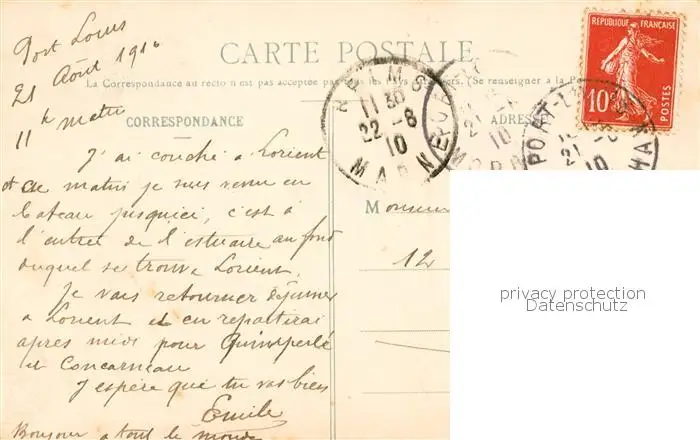 Port Louis
21 Août 1910
11h matin
CARTE POSTALE
La Correspondance au recto n'est pas acceptée par tous les pays étrangers. (Se renseigner à la Poste)
CORRESPONDANCE
ADRESSE
RÉPUBLIQUE FRANÇAISE
10c
POSTES
REIMS
11 30
22 -8
10
MARNE
21
10
PORT-L
21 -8
10
J'ai couché à Lorient
et ce matin je suis venu en
bateau jusqu'ici, c'est à
l'entrée de l'estuaire au fond
duquel se trouve Lorient.
Je vais retourner déjeuner
à Lorient et en repartirai
après midi pour Quimperlé
et Concarneau
J'espère que tu vas bien
Emile
Bonjour à tout le monde
Monsieur
12
privacy protection
Datenschutz